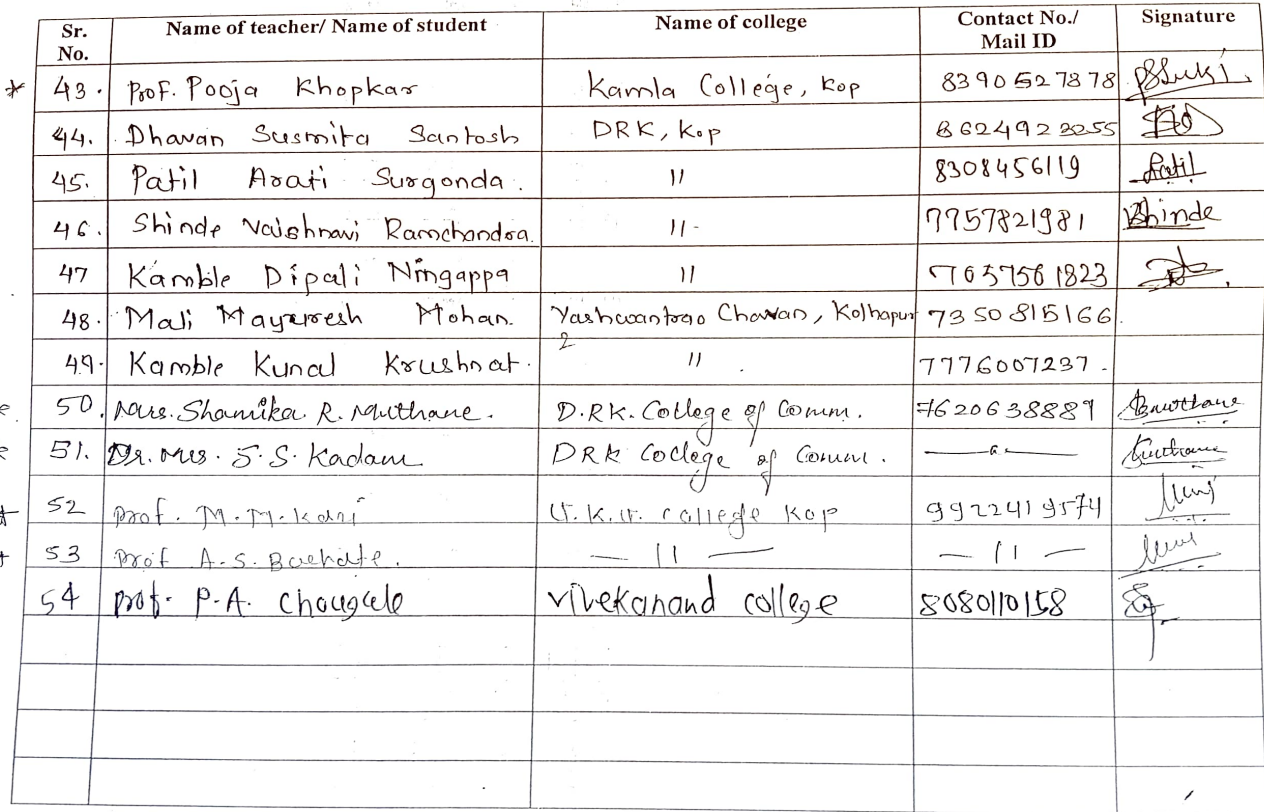 Sr. No. Name of teacher/ Name of student Name of college Contact No./ Mail ID Signature
* 43. Prof. Pooja Khopkar Kamla College, Kop 8390527878
44. Dhavan Susmita Santosh DRK, Kop 8624923255
45. Patil Arati Surgonda. 11 8308456119 Patil
46. Shinde Vaishnavi Ramchandra. 11- 7757821981 Shinde
47 Kamble Dipali Ningappa 11 7057561823
48. Mali Mayuresh Mohan. Yashwantrao Chavan, Kolhapur 7350815166.
49. Kamble Kunal Krushnat. 11 7776007237.
50. Mrs. Shamika. R. D.RK. College of Comm. 7620638889
51. Dr. Mrs. S.S. Kadam DRK College of Comm. —"—
52 prof. M.M. College Kop 9922419574
53 prof A.S. — 11 — — 11 —
54 prof. P.A. Chougule vivekanand college 8080110158